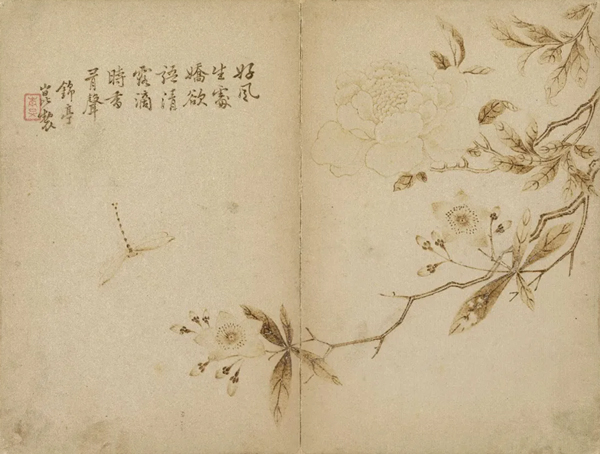 好風
生處
嬌欲
語清
露滴
時香
有聲
錦亭